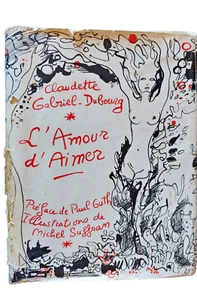 Claudette
Gabriel-Dubourg
L'Amour
d'Aimer
Préface de Paul Guth
Illustrations de
Michel Suffran